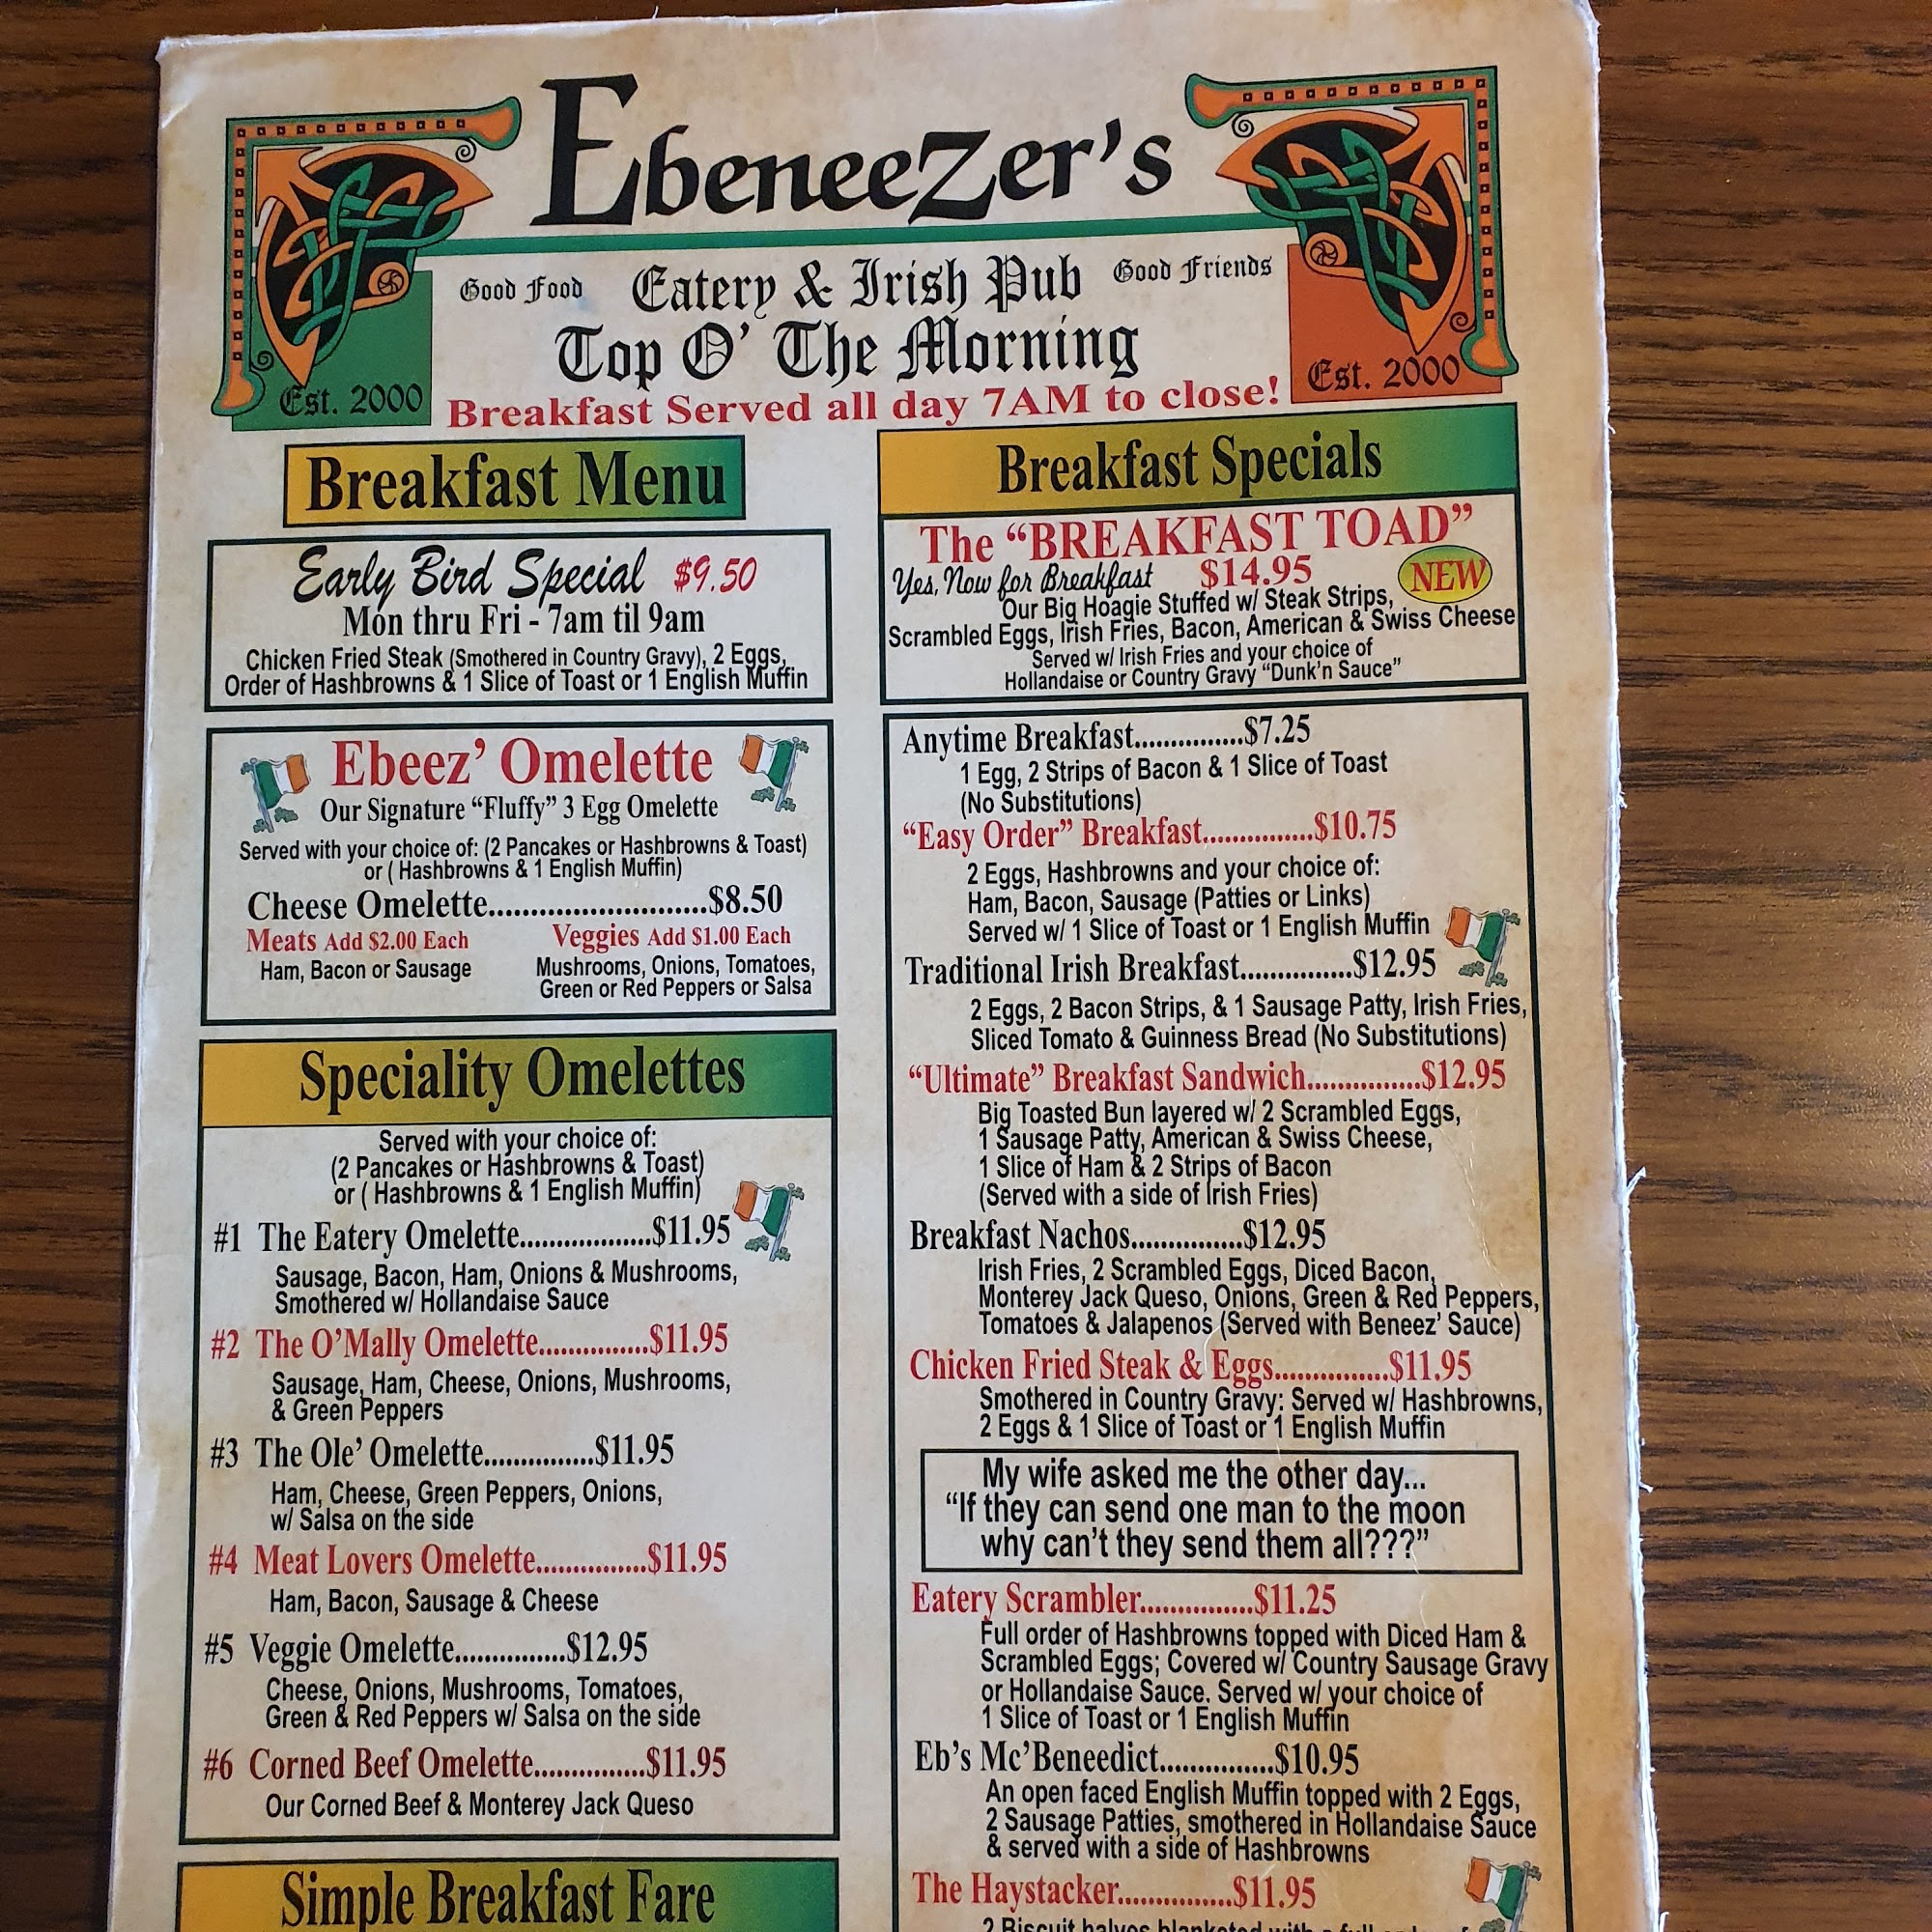 Ebeneezer's
Good Food Eatery & Irish Pub Good Friends
Top O' The Morning
Est. 2000
Est. 2000
Breakfast Served all day 7AM to close!
Breakfast Menu
Early Bird Special $9.50
Mon thru Fri - 7am til 9am
Chicken Fried Steak (Smothered in Country Gravy), 2 Eggs,
Order of Hashbrowns & 1 Slice of Toast or 1 English Muffin
Ebeez' Omelette
Our Signature "Fluffy" 3 Egg Omelette
Served with your choice of: (2 Pancakes or Hashbrowns & Toast)
or ( Hashbrowns & 1 English Muffin)
Cheese Omelette..........................$8.50
Meats Add $2.00 Each
Ham, Bacon or Sausage
Veggies Add $1.00 Each
Mushrooms, Onions, Tomatoes,
Green or Red Peppers or Salsa
Speciality Omelettes
Served with your choice of:
(2 Pancakes or Hashbrowns & Toast)
or ( Hashbrowns & 1 English Muffin)
#1 The Eatery Omelette..................$11.95
Sausage, Bacon, Ham, Onions & Mushrooms,
Smothered w/ Hollandaise Sauce
#2 The O'Mally Omelette...............$11.95
Sausage, Ham, Cheese, Onions, Mushrooms,
& Green Peppers
#3 The Ole' Omelette...............$11.95
Ham, Cheese, Green Peppers, Onions,
w/ Salsa on the side
#4 Meat Lovers Omelette...............$11.95
Ham, Bacon, Sausage & Cheese
#5 Veggie Omelette...............$12.95
Cheese, Onions, Mushrooms, Tomatoes,
Green & Red Peppers w/ Salsa on the side
#6 Corned Beef Omelette...............$11.95
Our Corned Beef & Monterey Jack Queso
Simple Breakfast Fare
Breakfast Specials
The "BREAKFAST TOAD"
Yes, Now for Breakfast $14.95 NEW
Our Big Hoagie Stuffed w/ Steak Strips,
Scrambled Eggs, Irish Fries, Bacon, American & Swiss Cheese
Served w/ Irish Fries and your choice of
Hollandaise or Country Gravy "Dunk'n Sauce"
Anytime Breakfast...............$7.25
1 Egg, 2 Strips of Bacon & 1 Slice of Toast
(No Substitutions)
"Easy Order" Breakfast...............$10.75
2 Eggs, Hashbrowns and your choice of:
Ham, Bacon, Sausage (Patties or Links)
Served w/ 1 Slice of Toast or 1 English Muffin
Traditional Irish Breakfast...............$12.95
2 Eggs, 2 Bacon Strips, & 1 Sausage Patty, Irish Fries,
Sliced Tomato & Guinness Bread (No Substitutions)
"Ultimate" Breakfast Sandwich...............$12.95
Big Toasted Bun layered w/ 2 Scrambled Eggs,
1 Sausage Patty, American & Swiss Cheese,
1 Slice of Ham & 2 Strips of Bacon
(Served with a side of Irish Fries)
Breakfast Nachos...............$12.95
Irish Fries, 2 Scrambled Eggs, Diced Bacon,
Monterey Jack Queso, Onions, Green & Red Peppers,
Tomatoes & Jalapenos (Served with Beneez' Sauce)
Chicken Fried Steak & Eggs...............$11.95
Smothered in Country Gravy: Served w/ Hashbrowns,
2 Eggs & 1 Slice of Toast or 1 English Muffin
My wife asked me the other day...
"If they can send one man to the moon
why can't they send them all???"
Eatery Scrambler...............$11.25
Full order of Hashbrowns topped with Diced Ham &
Scrambled Eggs; Covered w/ Country Sausage Gravy
or Hollandaise Sauce. Served w/ your choice of
1 Slice of Toast or 1 English Muffin
Eb's Mc'Beneedict...............$10.95
An open faced English Muffin topped with 2 Eggs,
2 Sausage Patties, smothered in Hollandaise Sauce
& served with a side of Hashbrowns
The Haystacker...............$11.95
2 Biscuit halves blanketed with a full